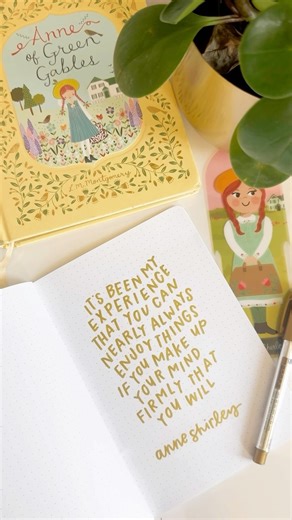 Anne
of Green
Gables
L.M. Montgomery
IT'S BEEN MY
EXPERIENCE
THAT YOU CAN
NEARLY ALWAYS
ENJOY THINGS
IF YOU MAKE UP
YOUR MIND
FIRMLY THAT
YOU WILL
anne shirley